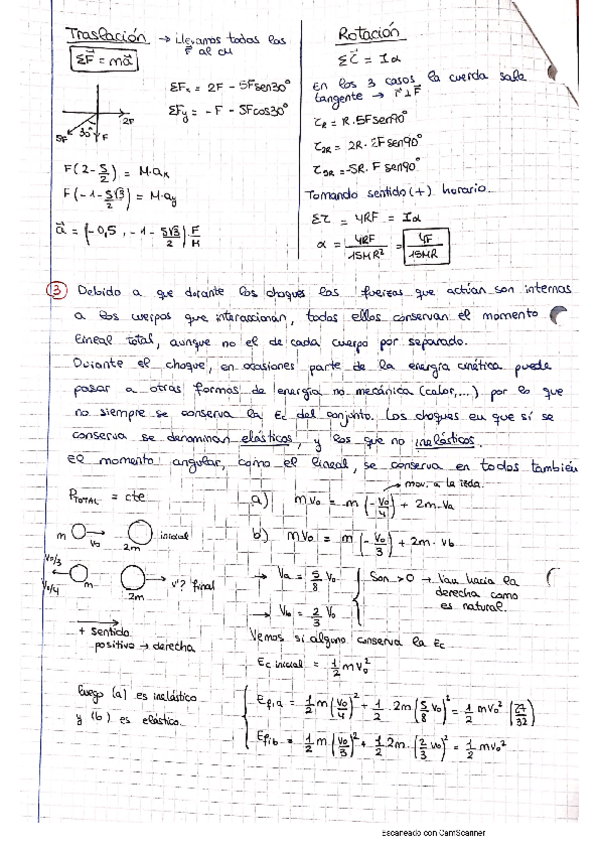 Traslación → Llevamos todas las
F⃗ al CM
ΣF⃗ = ma⃗
ΣFx = 2F - 5Fsen30°
ΣFy = -F - 5Fcos30°
30°
2F
5F
F
F(2 - 5/2) = M·ax
F(-1 - 5√3/2) = M·ay
a⃗ = (-0,5, -1 - 5√3/2) F/M
Rotación
Στ⃗ = Iα
En los 3 casos la cuerda sale
tangente → r⃗ ⊥ F⃗
τR = R·5Fsen90°
τ2R = 2R·2Fsen90°
τ5R = -5R·Fsen90°
Tomando sentido (+) horario
Στ = 4RF = Iα
α = 4RF/15MR² = 4F/15MR
③ Debido a que durante los choques las fuerzas que actúan son internas
a los cuerpos que interaccionan, todos ellos conservan el momento
lineal total, aunque no el de cada cuerpo por separado.
Durante el choque, en ocasiones parte de la energía cinética puede
pasar a otras formas de energía no mecánica (calor,...) por lo que
no siempre se conserva la Ec del conjunto. Los choques en que sí se
conserva se denominan elásticos, y los que no inelásticos.
El momento angular, como el lineal, se conserva en todos también
mov. a la izda.
PTOTAL = cte
a) mv0 = m(-v0/4) + 2m·va
m v0 2m inicial
b) mv0 = m(-v0/3) + 2m·vb
v0/3
v0/4 m 2m v'? final
→ va = 5/8 v0
→ vb = 2/3 v0
Son >0 → Van hacia la
derecha como
es natural.
+ sentido
positivo → derecha
Vemos si alguno conserva la Ec
Ec inicial = 1/2 mv0²
luego (a) es inelástico
y (b) es elástico
Ef,a = 1/2 m(v0/4)² + 1/2 2m(5/8 v0)² = 1/2 mv0² (27/32)
Ef,b = 1/2 m(v0/3)² + 1/2 2m·(2/3 v0)² = 1/2 mv0²
Escaneado con CamScanner